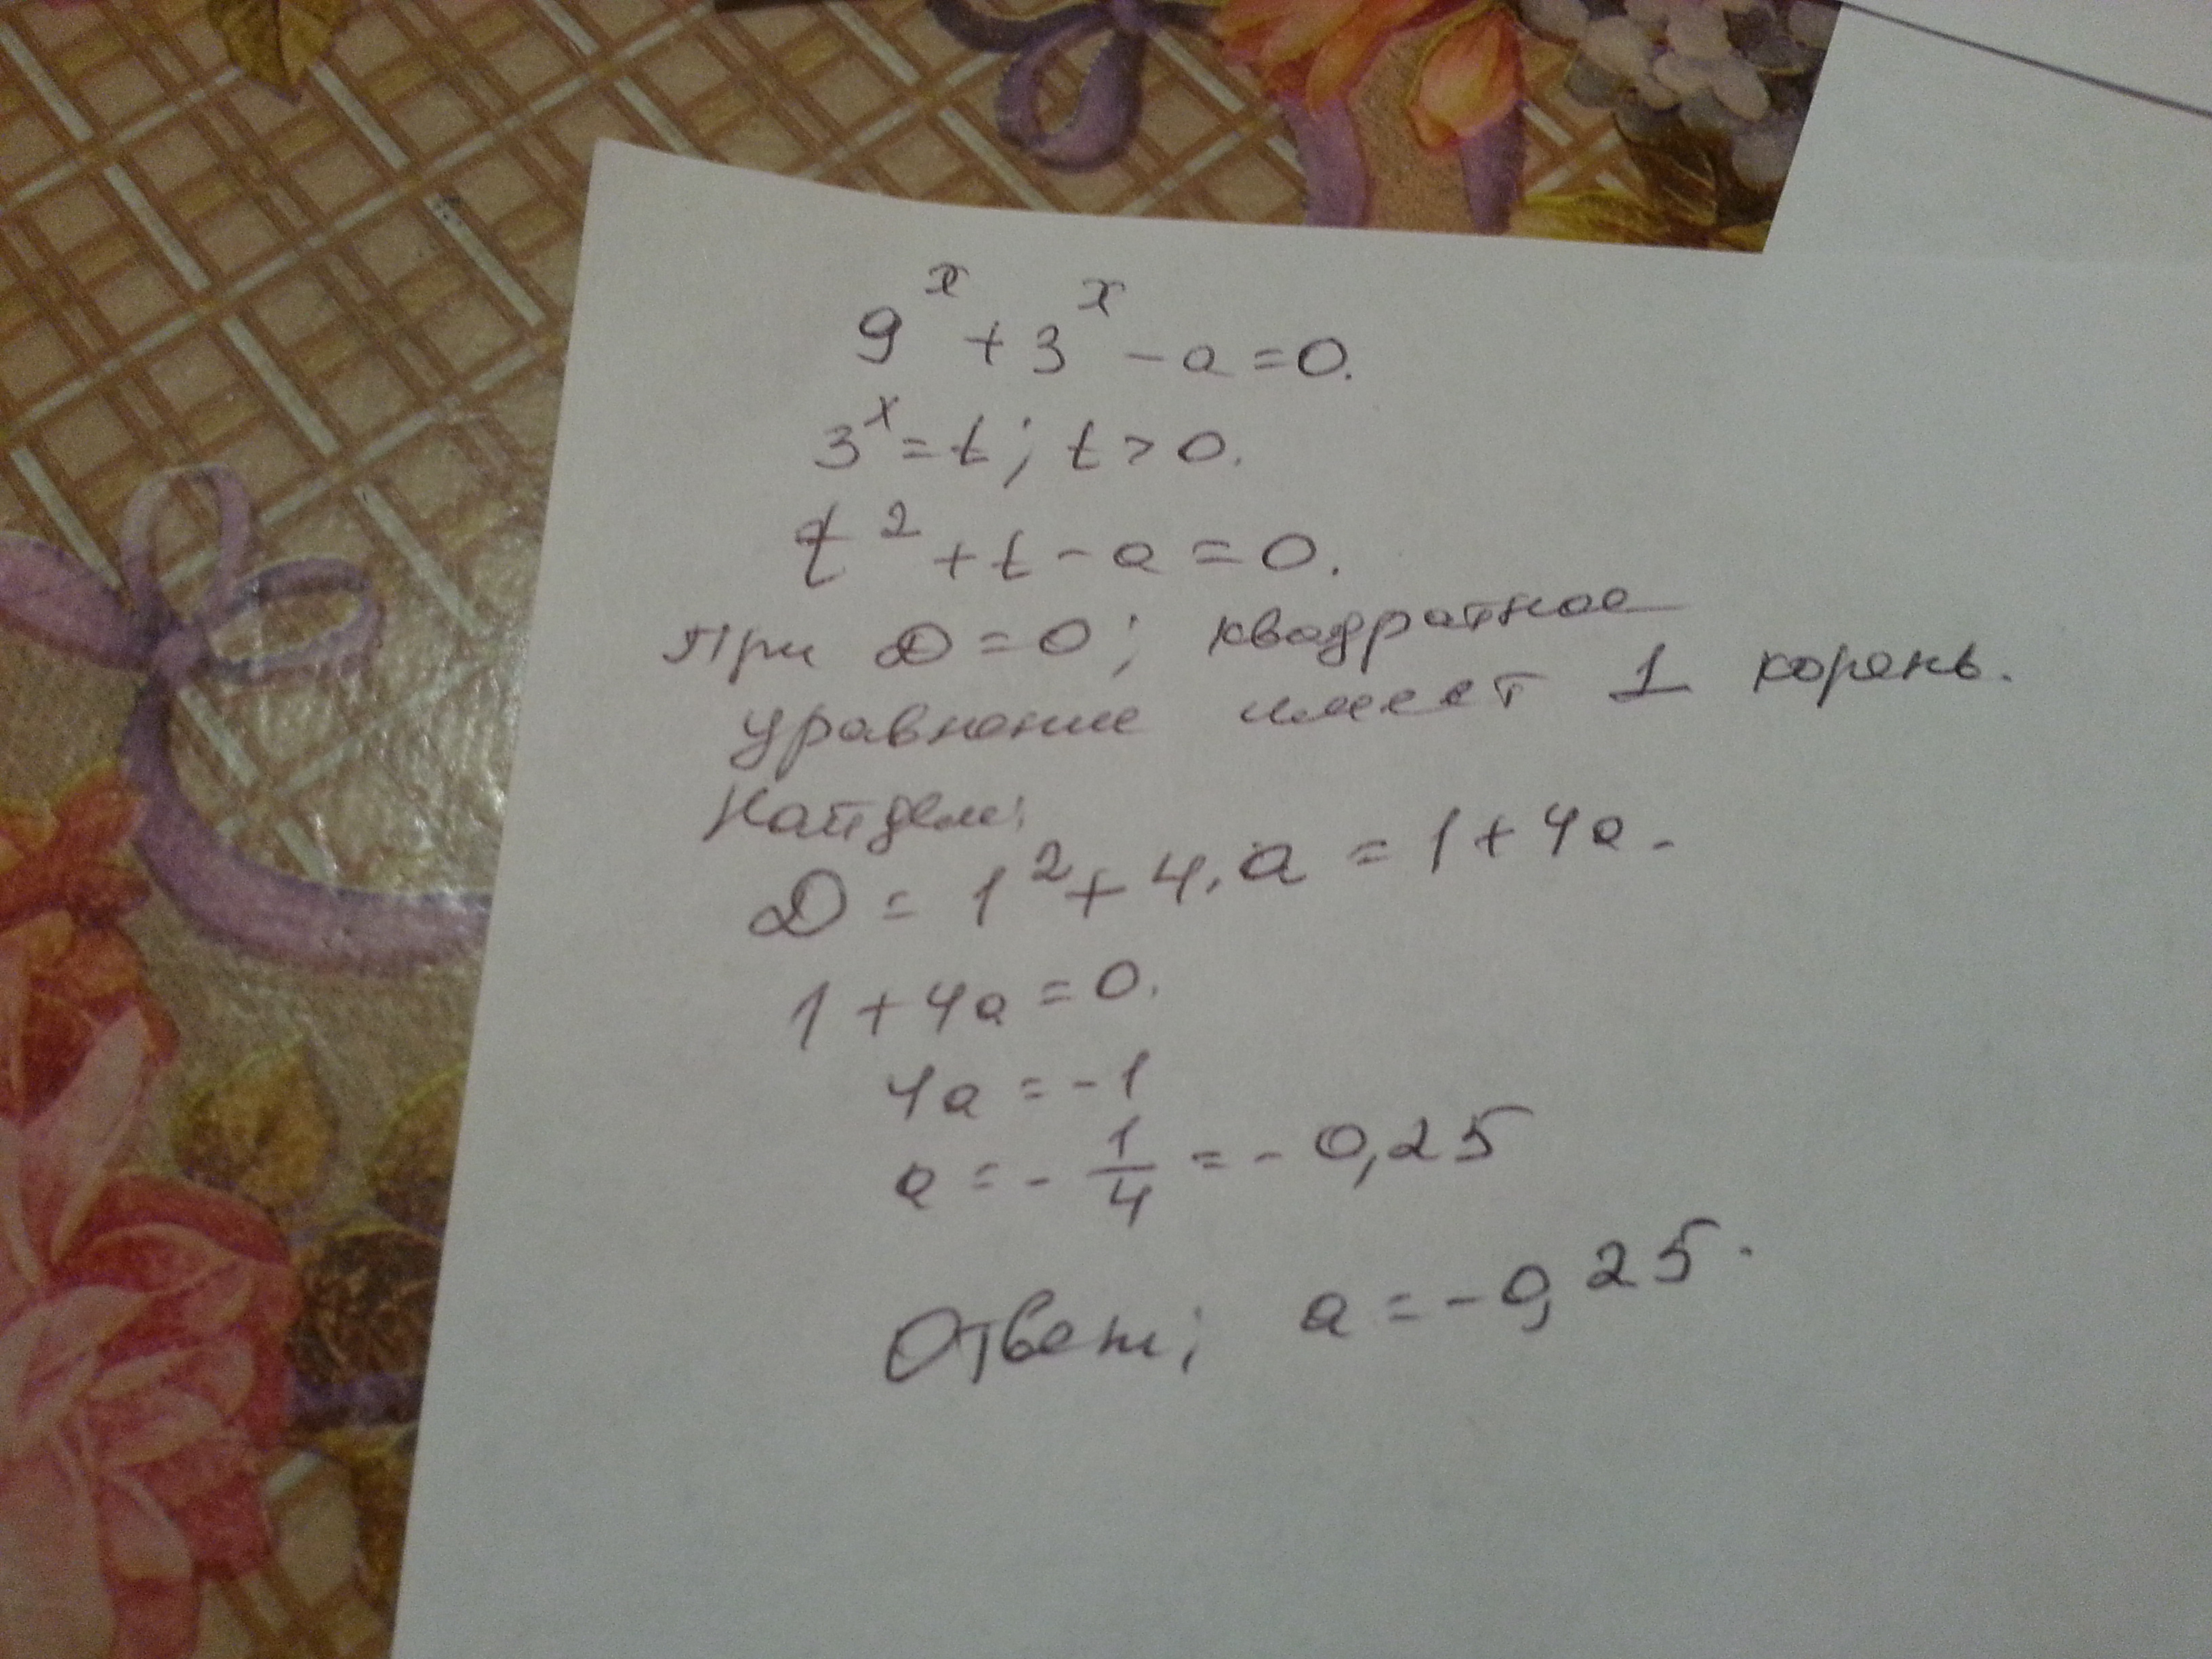 9ˣ + 3ˣ - a = 0.
3ˣ = t; t > 0.
t² + t - a = 0.
При D = 0; квадратное
уравнение имеет 1 корень.
Найдем:
D = 1² + 4·a = 1 + 4a.
1 + 4a = 0.
4a = -1
a = - 1/4 = - 0,25
Ответ; a = -0,25.